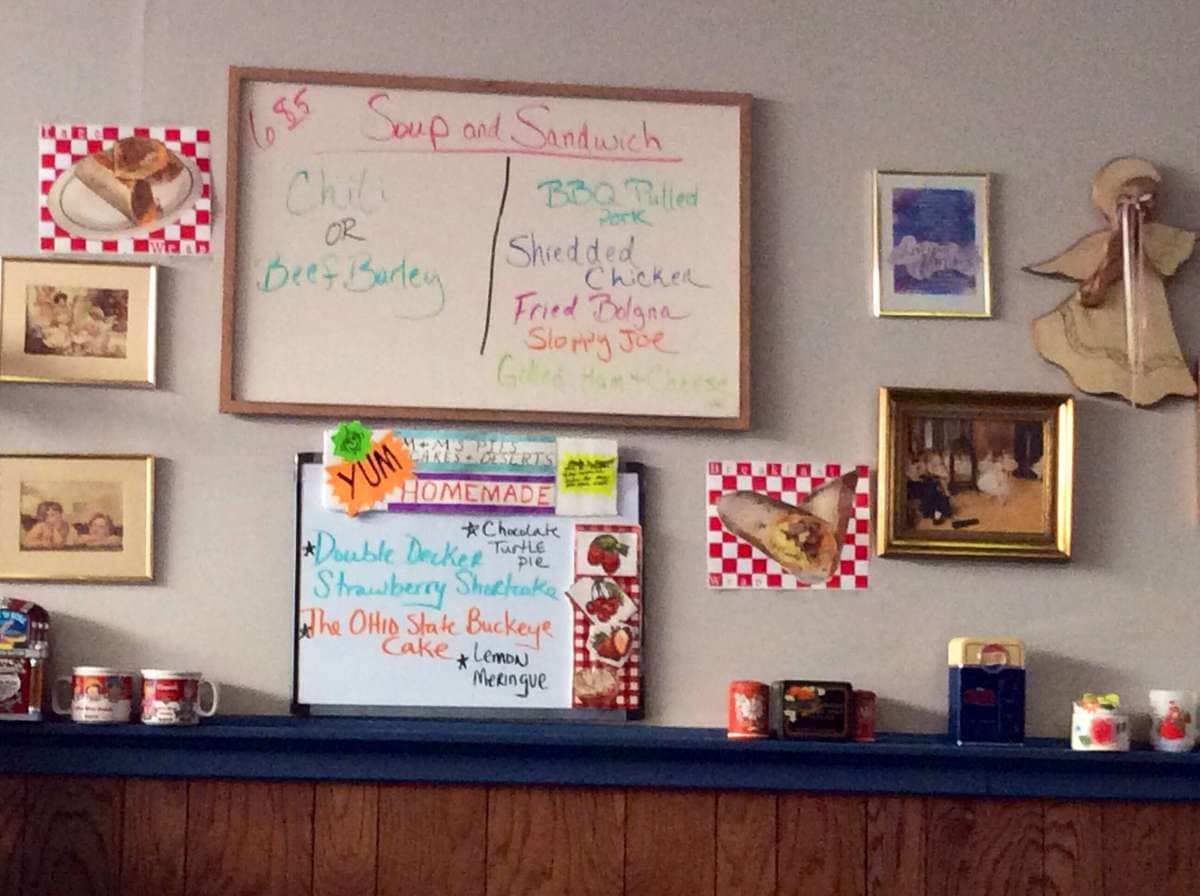 6 85
Soup and Sandwich
Chili
OR
Beef Barley
BBQ Pulled
Pork
Shredded
Chicken
Fried Bolgna
Sloppy Joe
Grilled Ham + Cheese
Taco
Wrap
YUM
M+M'S PIES
CAKES + DESERTS
HOMEMADE
★ Chocolate
Turtle
Pie
★ Double Decker
Strawberry Shortcake
★ The OHIO State Buckeye
Cake
★ Lemon
Meringue
Breakfast
Wrap